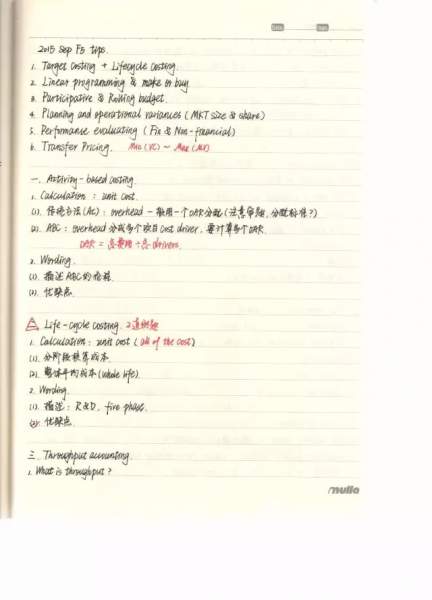 2015 Sep F5 tips.
1. Target costing + Lifecycle costing.
2. Linear programming & make or buy
3. Participative & Rolling budget.
4. Planning and operational variances (MKT size & share)
5. Performance evaluating (Fin & Non-financial)
6. Transfer Pricing. Min (VC) ~ Max (MP)
一、Activity-based costing.
1. Calculation: unit cost.
(1). 传统方法(AC): overhead 一般用一个OAR分配(注意审题, 分配标准?)
(2). ABC: overhead分成多个项目 cost driver, 要计算多个OAR.
OAR = 总费用 ÷ 总 drivers.
2. Wording.
(1). 描述ABC的
(2). 优缺点.
二、Life-cycle costing. 2道例题
1. Calculation: unit cost (all of the cost)
(1). 分阶段核算成本.
(2). 整体平均成本(whole life).
2. Wording.
(1). 描述: R&D, five phase.
(2). 优缺点.
三、Throughput accounting.
1. What is throughput?
nulla